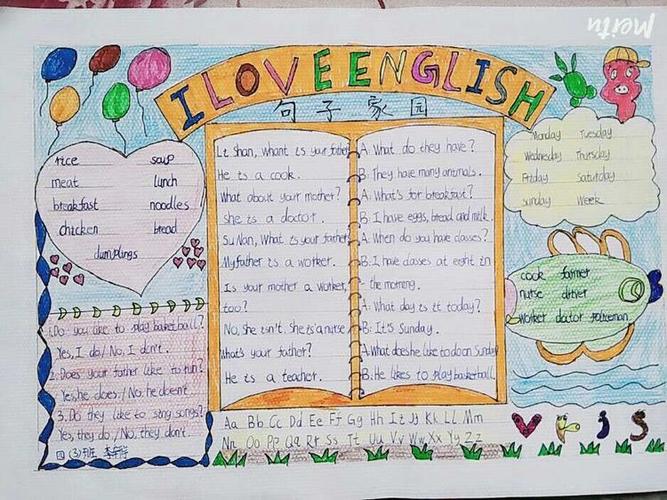 Meitu
I LOVE ENGLISH
句子家园
rice soup
meat lunch
breakfast noodles
chicken bread
dumplings
1. Do you like to play basketball?
Yes, I do / No, I don't.
2. Does your father like to run?
Yes he does. / No he doesn't
3. Do they like to sing songs?
Yes, they do. / No, they don't.
四(3)班
Li Shan, whant is your father
He is a cook.
What about your mother?
she is a doctor.
Su Nan, What is your father
My father is a worker.
Is your mother a worker,
too?
No, she isn't. She is a nurse
What's your father?
He is a teacher.
A. What do they have?
B. They have many animals.
A. What's for breakfast?
B. I have eggs, bread and milk.
A. When do you have classes?
B. I have classes at eight in
the morning.
A. What day is it today?
B: It's Sunday.
A. What does he like to do on Sunday
B. He likes to play basketball
Monday Tuesday
Wednesday Thursday
Friday Saturday
Sunday Week
cook farmer
nurse driver
worker doctor policeman
Aa Bb Cc Dd Ee Ff Gg Hh Ii Jj Kk Ll Mm
Nn Oo Pp Qq Rr Ss Tt Uu Vv Ww Xx Yy Zz